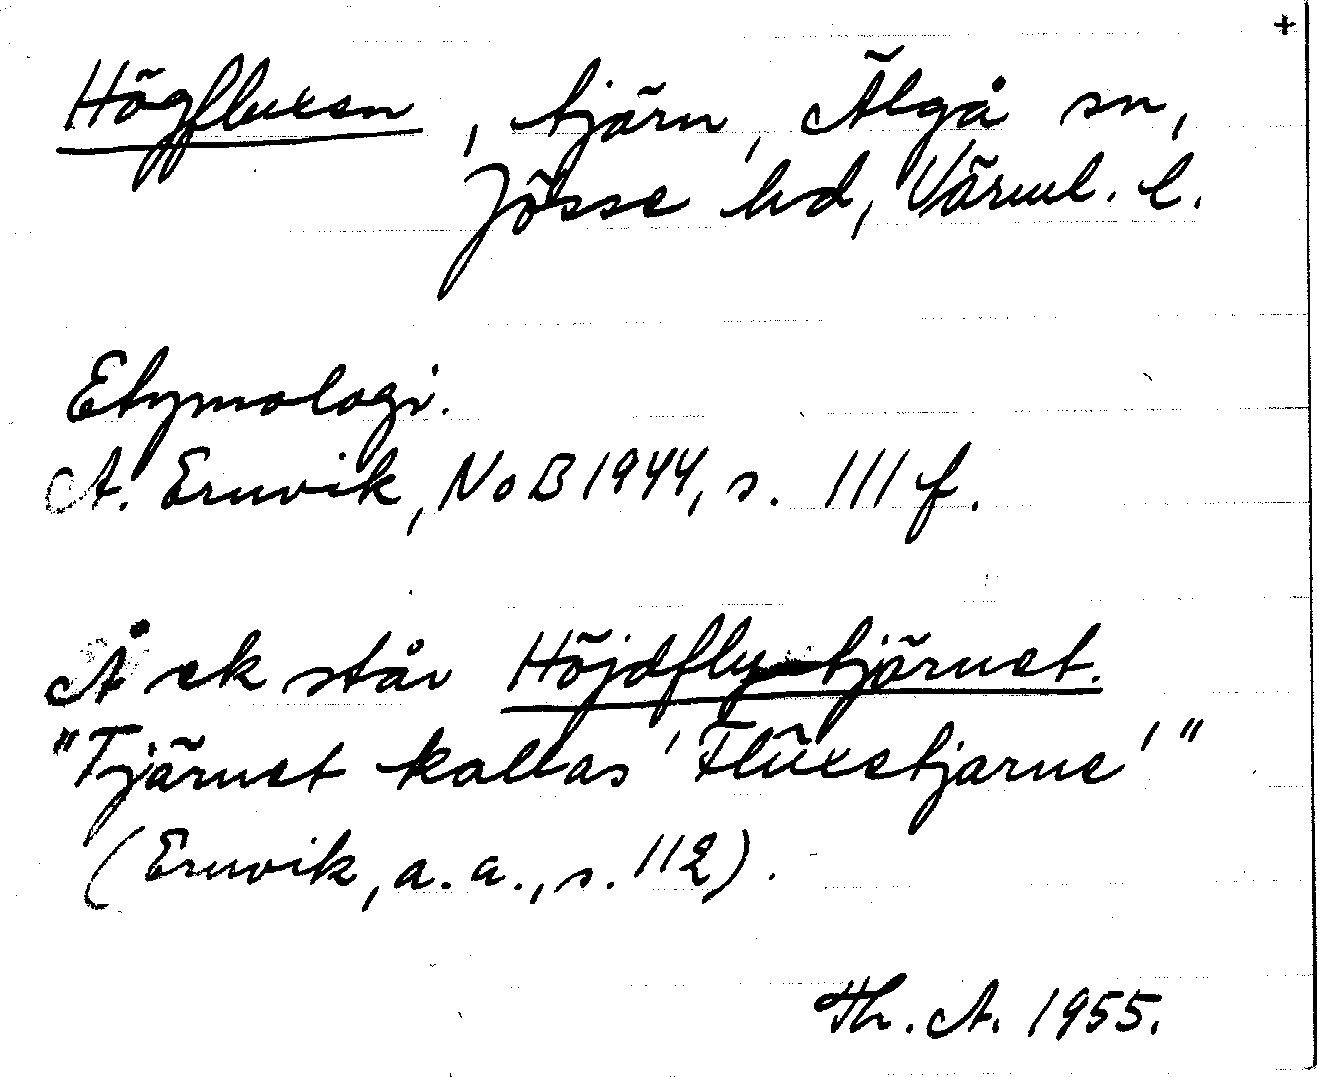 +
Högfluxen, tjärn, Älgå sn,
Jösse hd, Värml. l.
Etymologi.
A. Ernvik, NoB 1944, s. 111 f.
Å ek står Höjdfly-tjärnet.
"Tjärnet kallas 'Flūxetjarne'"
(Ernvik, a.a., s. 112).
Th. A. 1955.